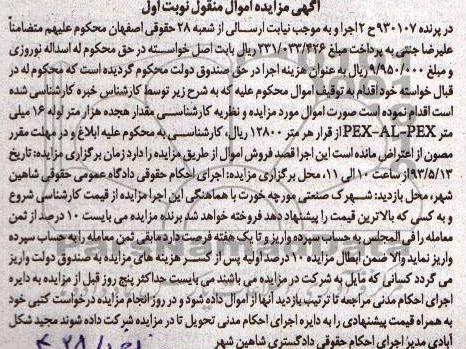 آگهی مزایده اموال منقول نوبت اول
در پرنده ۹۳۰۱۰۷ح ۲ اجرا و به موجب نیابت ارسالی از شعبه ۲۸ حقوقی اصفهان محکوم علیهم متضامناً
علیرضا جنتی به پرداخت مبلغ ۳۳۱/۰۳۳/۴۲۶ ریال بابت اصل خواسته در حق محکوم له اسداله نوروزی
و مبلغ ۹/۹۵۰/۰۰۰ ریال به عنوان هزینه اجرا در حق صندوق دولت محکوم گردیده است که محکوم له در
قبال خواسته خود اقدام به توقیف اموال محکوم علیه که به شرح زیر توسط کارشناس خبره کارشناسی شده
است اقدام نموده است صورت اموال مورد مزایده و نظریه کارشناسی مقدار هجده هزار متر لوله ۱۶ میلی
متر PEX-AL-PEX از قرار هر متر ۱۲۸۰۰ ریال، کارشناسی به محکوم علیه ابلاغ و در مهلت مقرر
مصون از اعتراض مانده است این اجرا قصد فروش اموال از طریق مزایده را دارد زمان برگزاری مزایده: تاریخ
۹۳/۵/۱۳ از ساعت ۱۰ الی ۱۱، محل برگزاری مزایده: اجرای احکام حقوقی دادگاه عمومی حقوقی شاهین
شهر، محل بازدید: شهرک صنعتی مورچه خورت با هماهنگی این اجرا مزایده از قیمت کارشناسی شروع
و به کسی که بالاترین قیمت را پیشنهاد دهد فروخته خواهد شد برنده مزایده می بایست ۱۰ درصد از ثمن
معامله را فی المجلس به حساب سپرده واریز و تا یک هفته فرصت دارد مابقی ثمن معامله را به حساب سپرده
واریز نماید والا ضمن ابطال مزایده ۱۰ درصد اولیه پس از کسر هزینه های مزایده به صندوق دولت واریز
می گردد کسانی که مایل به شرکت در مزایده می باشند می بایست حداکثر پنج روز قبل از مزایده به دایره
اجرای احکام مدنی مراجعه تا ترتیب بازدید آنها از اموال داده شود و در روز انجام مزایده درخواست کتبی خود
به همراه قیمت پیشنهادی را به دایره اجرای احکام مدنی تحویل تا در مزایده شرکت داده شوند مجید شکل
آبادی مدیر اجرای احکام حقوقی دادگستری شاهین شهر